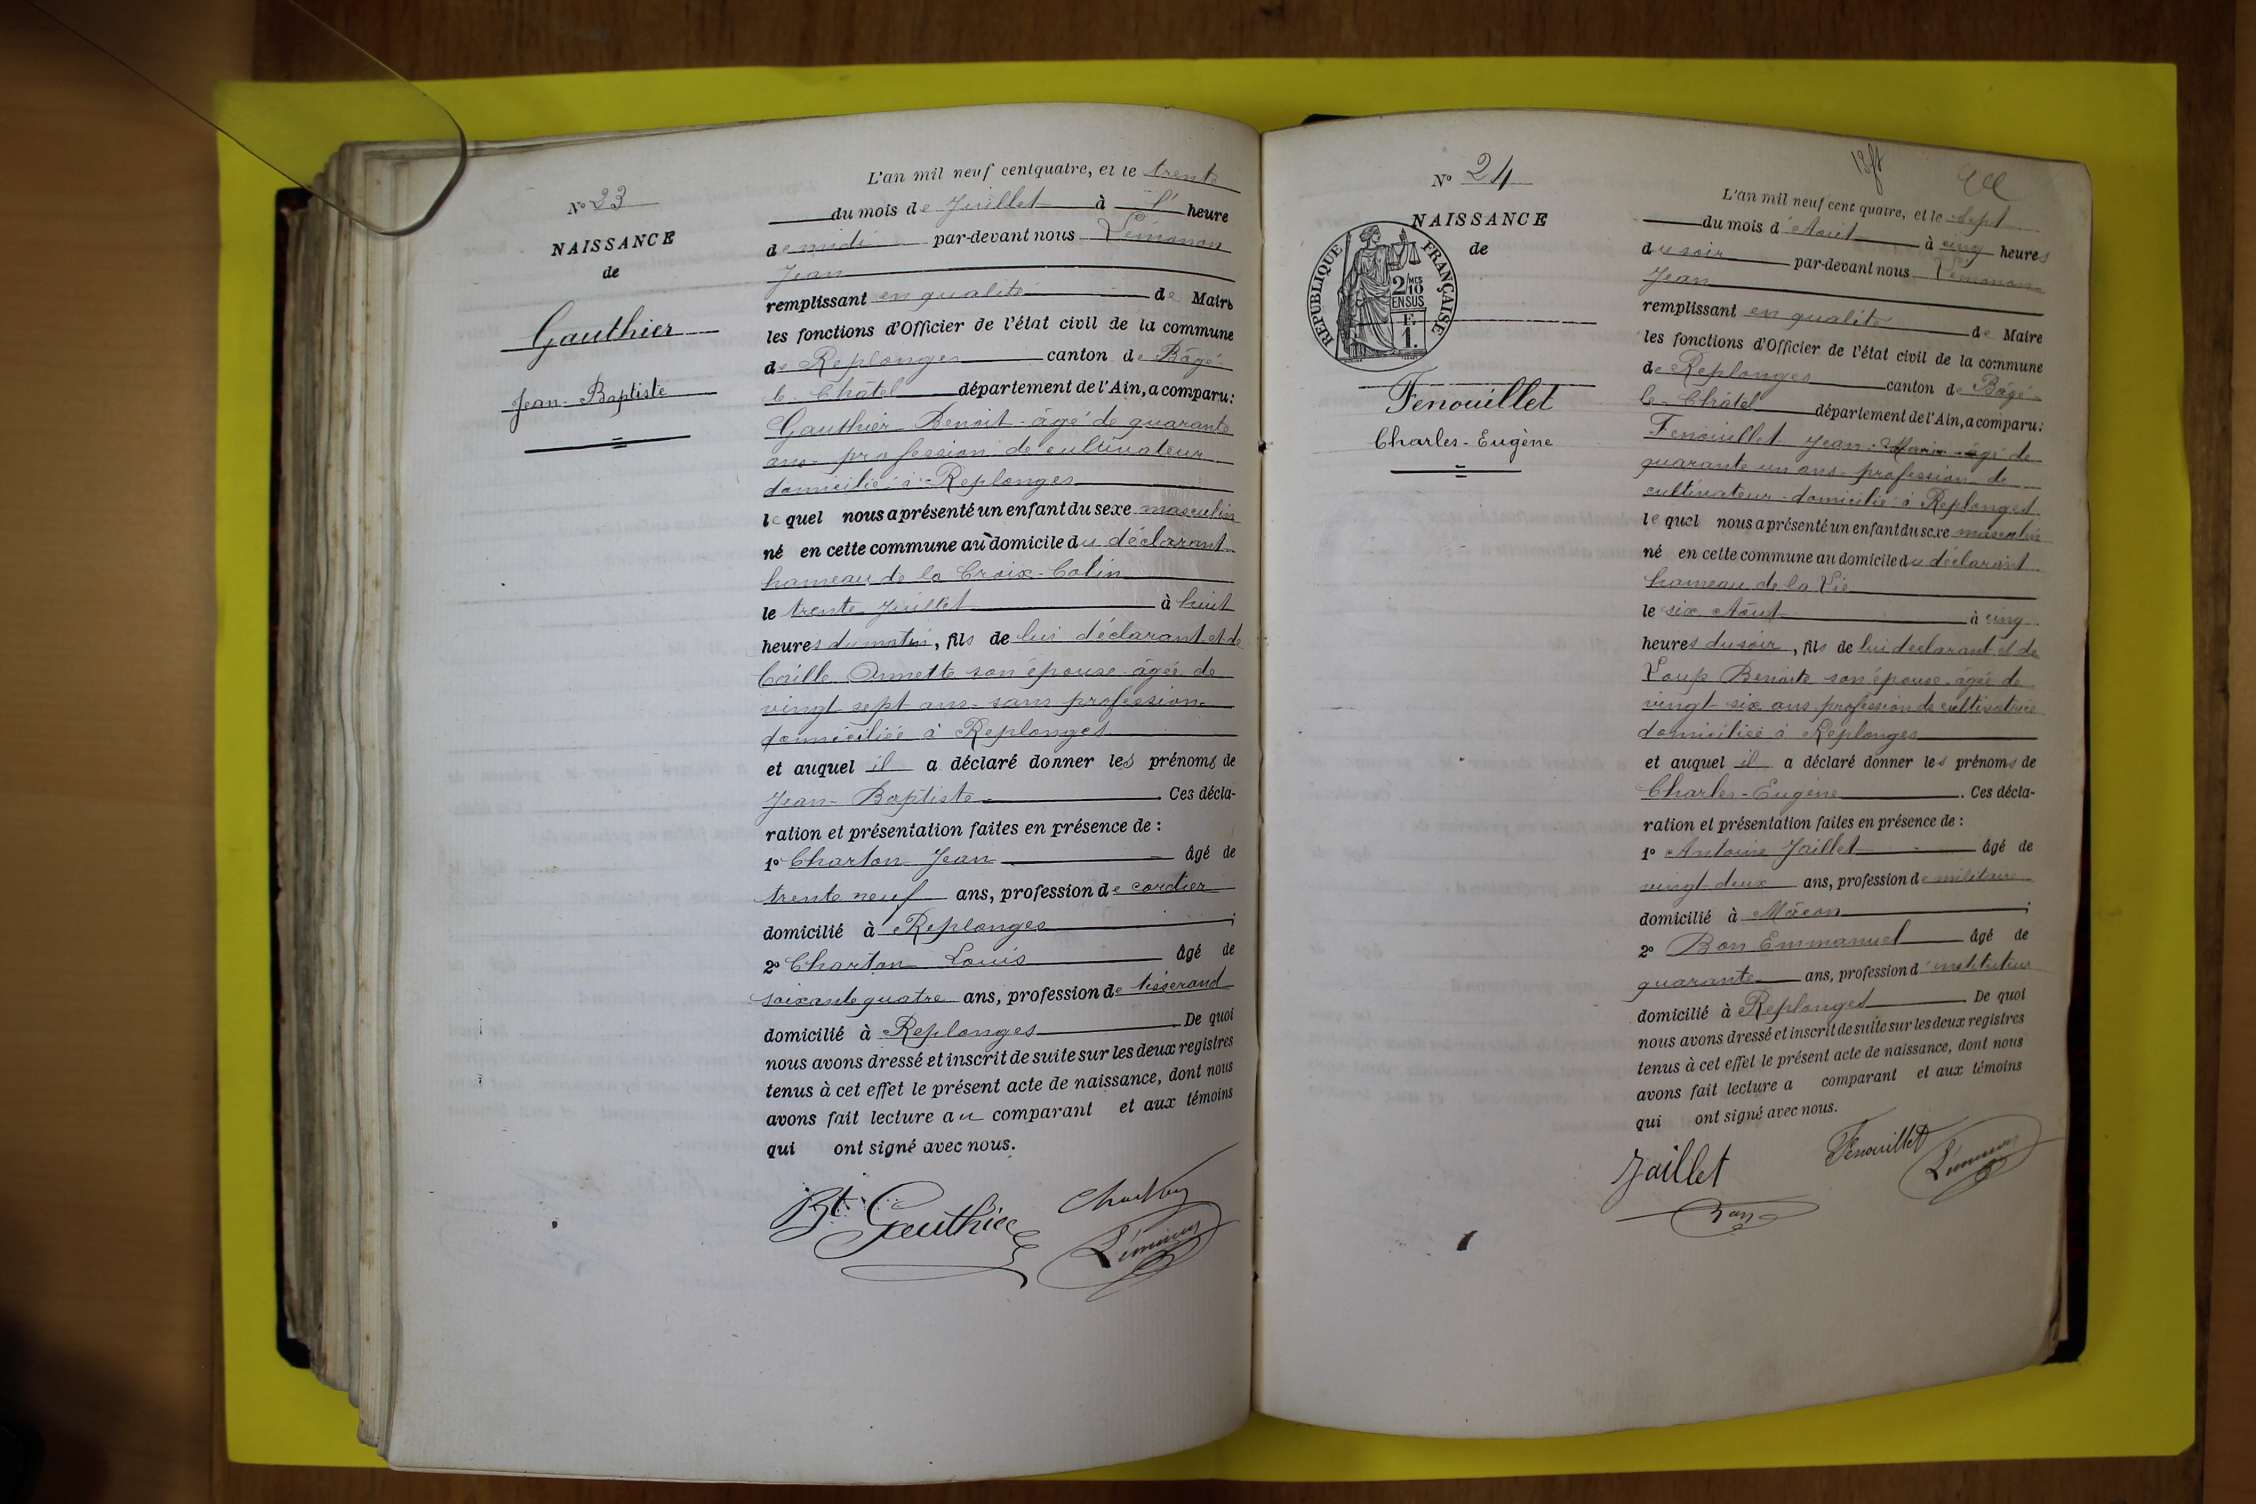 L'an mil neuf cent quatre, et le trente
N° 23
du mois de Juillet à l' heure
NAISSANCE
de midi par-devant nous Lémonon
de
Jean
remplissant en qualité de Maire
Gauthier
les fonctions d'Officier de l'état civil de la commune
de Replonges canton de Bâgé
Jean-Baptiste
le Châtel département de l'Ain, a comparu:
Gauthier Benoit âgé de quarante
ans profession de cultivateur
domicilié à Replonges
lequel nous a présenté un enfant du sexe masculin
né en cette commune au domicile du déclarant
hameau de la Croix-Colin
le trente Juillet à huit
heures du matin, fils de lui déclarant et de
Caille Annette son épouse âgée de
vingt sept ans sans profession
domiciliée à Replonges
et auquel il a déclaré donner les prénoms de
Jean-Baptiste. Ces décla-
ration et présentation faites en présence de :
1° Charton Jean âgé de
trente neuf ans, profession de cordier
domicilié à Replonges ;
2° Charton Louis âgé de
soixante quatre ans, profession de tisserand
domicilié à Replonges. De quoi
nous avons dressé et inscrit de suite sur les deux registres
tenus à cet effet le présent acte de naissance, dont nous
avons fait lecture au comparant et aux témoins
qui ont signé avec nous.
Bt Gauthier
Charton
Lémonon
N° 24
NAISSANCE
de
RÉPUBLIQUE FRANÇAISE
2/10 MES
EN SUS
F.
1.
Fenouillet
Charles-Eugène
L'an mil neuf cent quatre, et le sept
du mois d'Août à cinq heures
du soir par-devant nous Lémonon
Jean
remplissant en qualité de Maire
les fonctions d'Officier de l'état civil de la commune
de Replonges canton de Bâgé
le Châtel département de l'Ain, a comparu:
Fenouillet Jean-Marie âgé de
quarante un ans profession de
cultivateur domicilié à Replonges
lequel nous a présenté un enfant du sexe masculin
né en cette commune au domicile du déclarant
hameau de la Vie
le six Août à cinq
heures du soir, fils de lui déclarant et de
Loup Benoite son épouse âgée de
vingt six ans profession de cultivatrice
domiciliée à Replonges
et auquel il a déclaré donner les prénoms de
Charles-Eugène. Ces décla-
ration et présentation faites en présence de :
1° Antoine Jaillet âgé de
vingt deux ans, profession de militaire
domicilié à Mâcon ;
2° Bon Emmanuel âgé de
quarante ans, profession d'instituteur
domicilié à Replonges. De quoi
nous avons dressé et inscrit de suite sur les deux registres
tenus à cet effet le présent acte de naissance, dont nous
avons fait lecture a comparant et aux témoins
qui ont signé avec nous.
Jaillet
Fenouillet
Lémonon
Bon